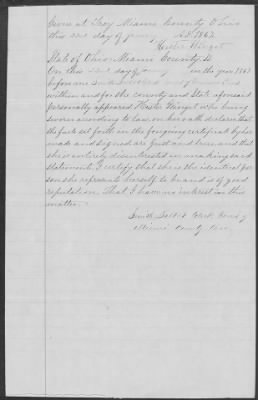 Given at Troy Miami County Ohio
this 22nd day of January A.D. 1867.
Hester Wingot
State of Ohio Miami County SS
On this 22nd day of January in the year 1867
before me Smith Talbot
within and for the County and State aforesaid
personally appeared Hester Wingot who being
sworn according to law, on her oath declares that
the facts set forth in the forgoing certificate by her
made and signed are just and true, and that
she is entirely disinterested in making said
statement. I certify that she is the identical per
son she represents herself to be and is of good
reputation. That I have no interest in this
matter.
Smith Talbot Clerk
Miami County Ohio